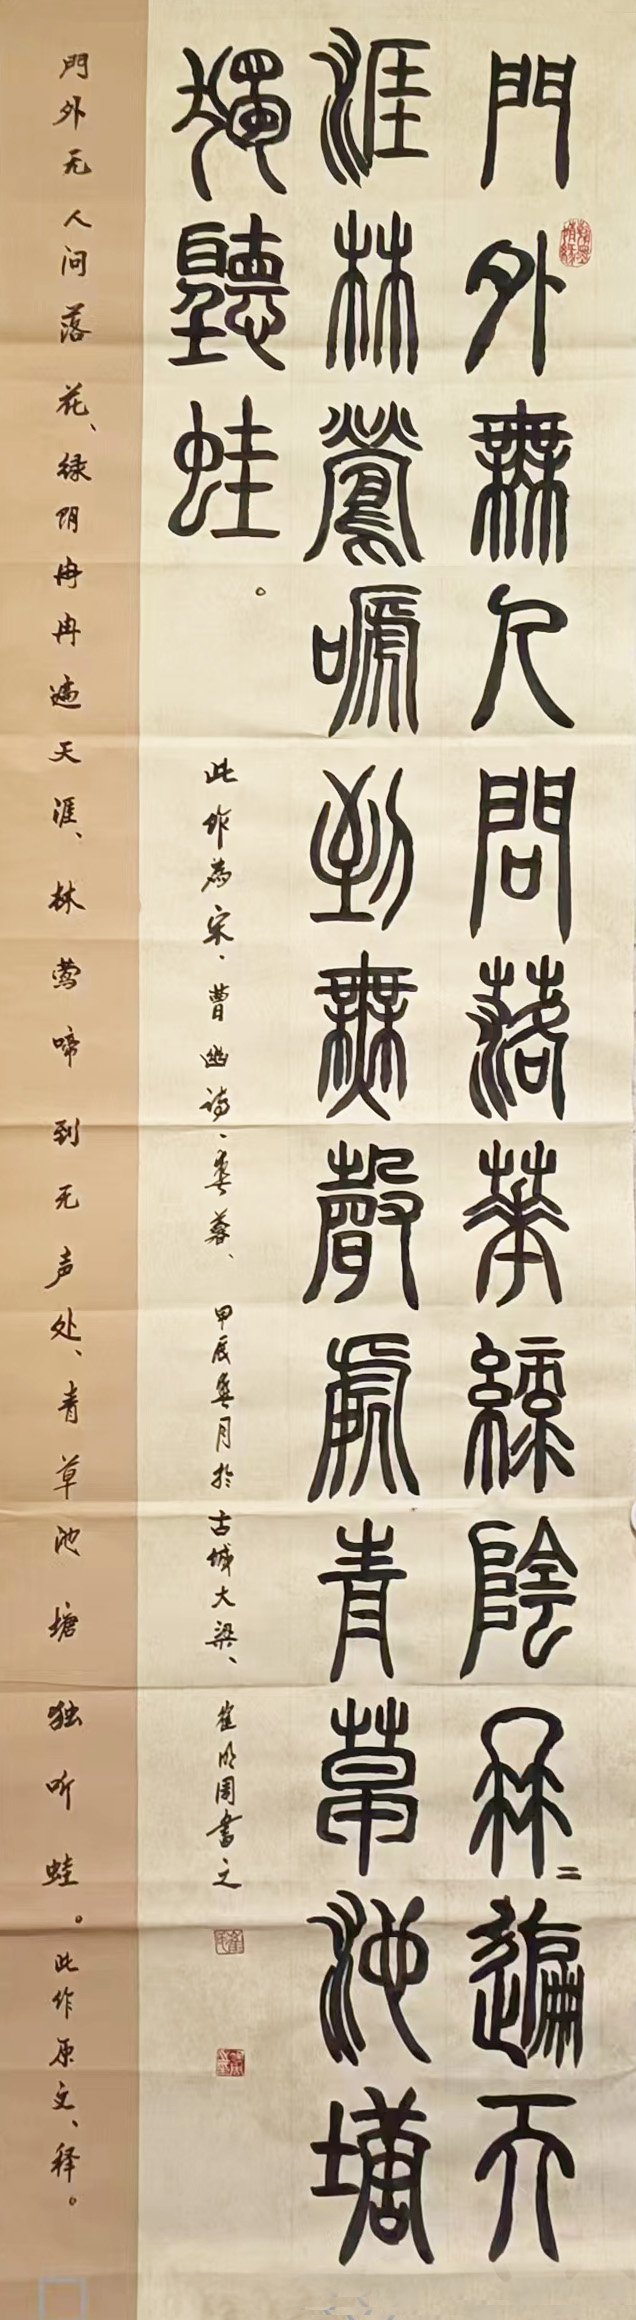 門外無人問落華綠陰冉二遍天
涯林鶯嗁到無聲處青草池塘
獨聽蛙。
此作為宋、曹豳诗、春暮、甲辰春月於古城大梁、崔明周書之
門外无人问落花、绿阴冉冉遍天涯、林莺啼到无声处、青草池塘独听蛙。此作原文、释。